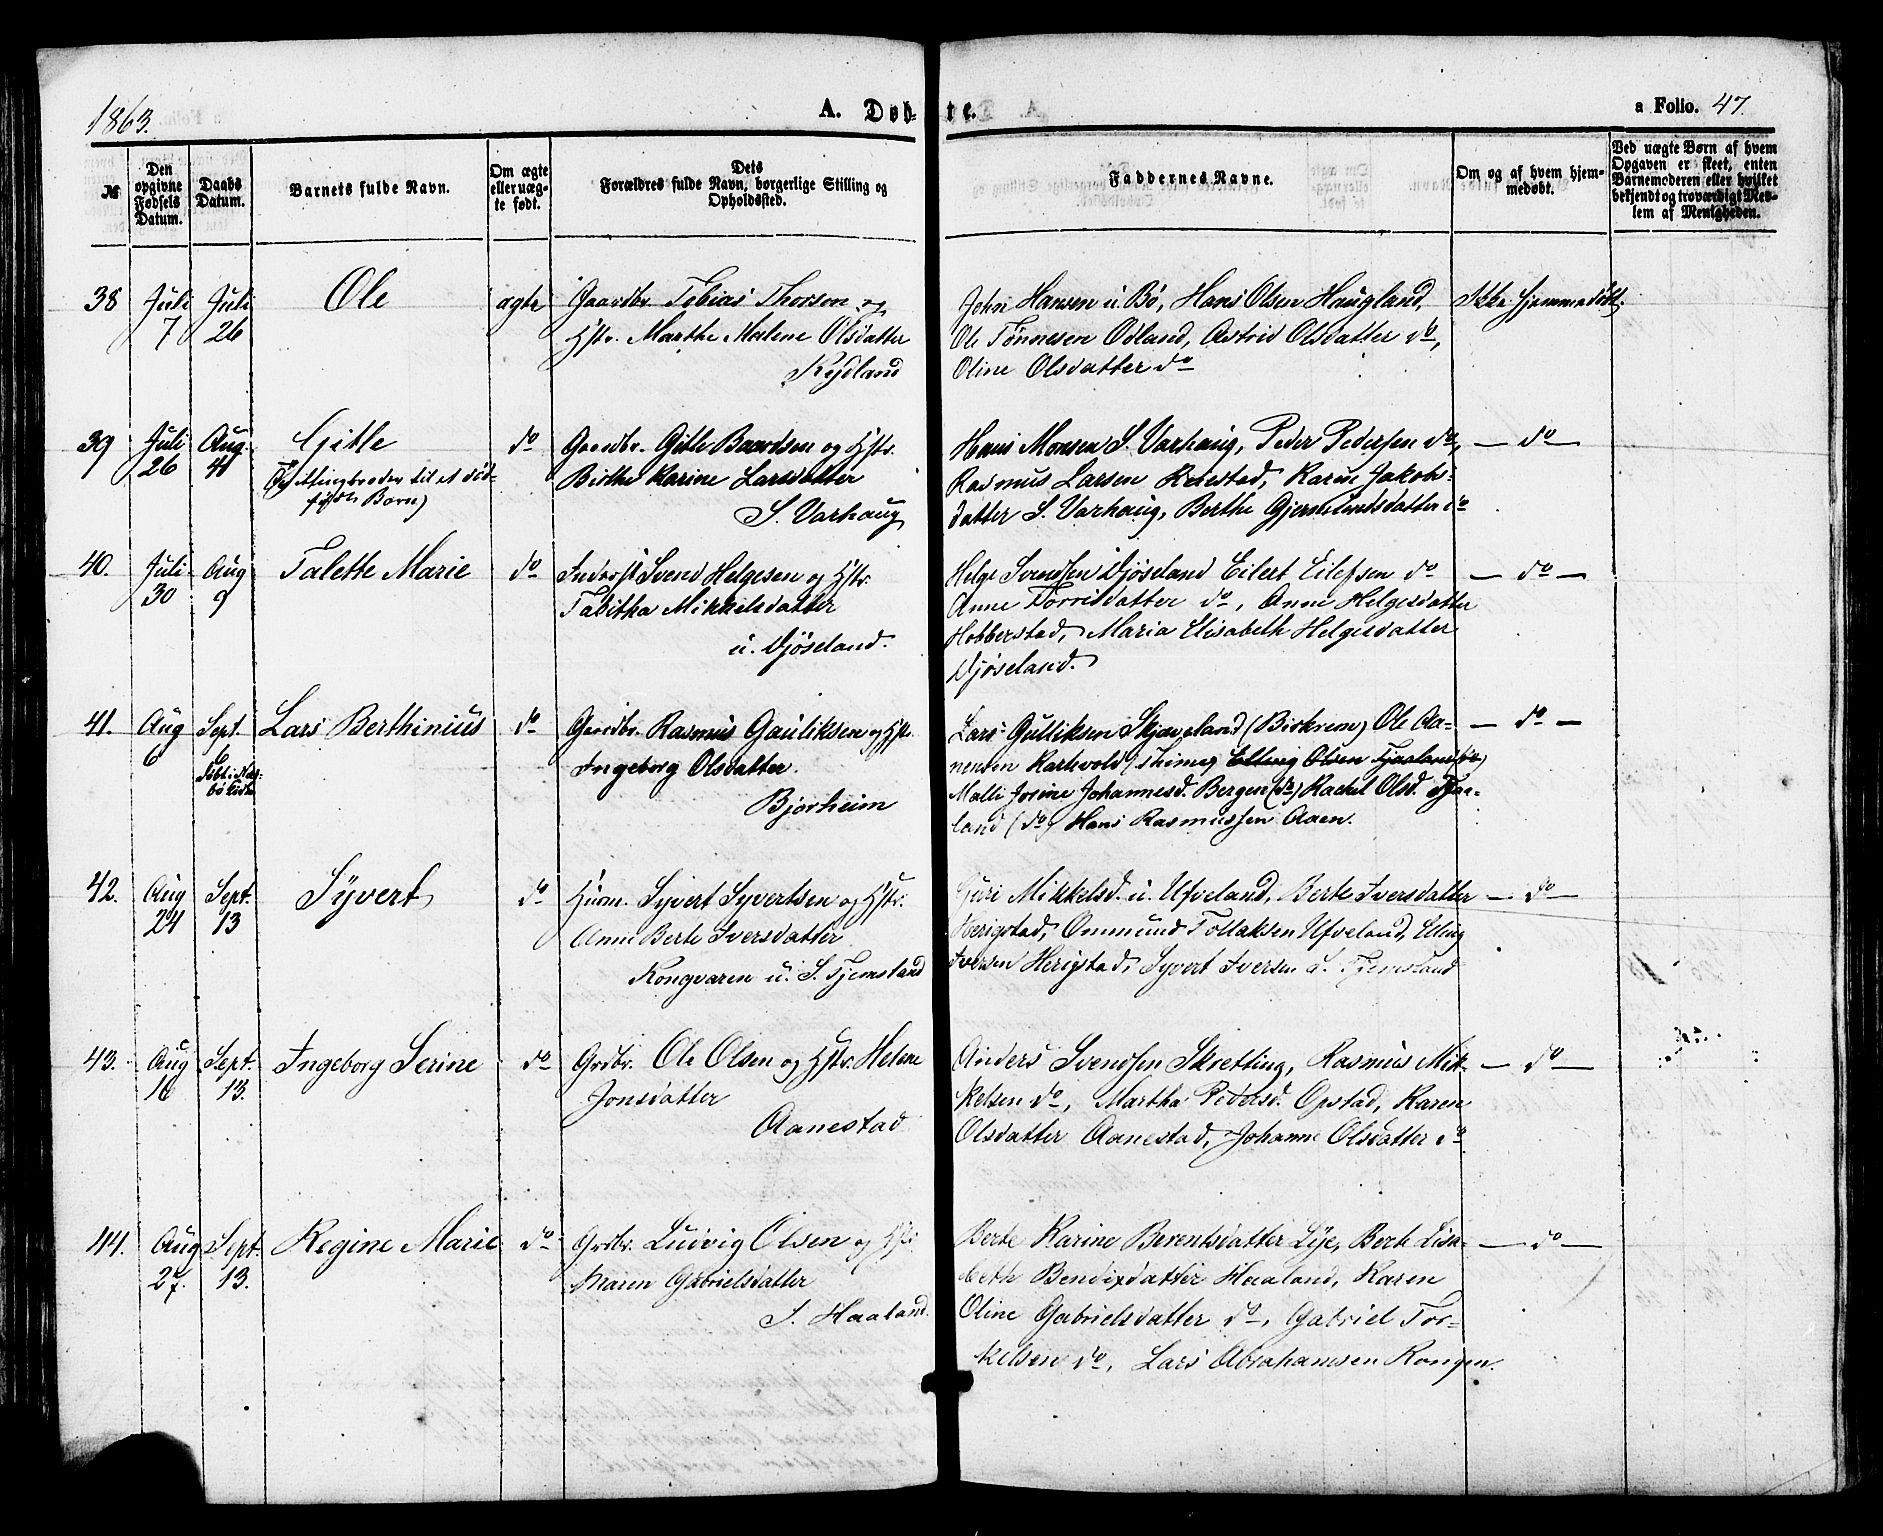 1863. A. Døb- te. a Folio. 47.
№
Den opgivne Fødsels Datum.
Daabs Datum.
Barnets fulde Navn.
Om ægte eller uæg- te født.
Dets Forældres fulde Navn, borgerlige Stilling og Opholdssted.
Faddernes Navne.
Om og af hvem hjem- medøbt.
Ved uægte Børn af hvem Opgaven er skeet, enten Barnemoderen eller hvilket bekjendt og troværdigt Med- lem af Menigheden.
38 Juli 7 Juli 26 Ole ægte Gaardbr. Tobias Thorsen og
Hstr. Marthe Malene Olsdatter
Rydland
John Hansen u. Bø, Hans Olsen Haugland, Ikke hjemmedøbt.
Ole Tønnesen Ødland, Astrid Olsdatter do,
Oline Olsdatter do
39 Juli 26 Aug. 4 Gitle do Gaardbr. Gitle Baardsen og Hstr.
(Tvillingbroder til et død-
født Barn)
Birthe Karine Larsdatter
S. Varhaug
Hans Monsen S. Varhaug, Peder Pedersen do, — do —
Rasmus Larsen Reiestad, Karine Jakobs-
datter S. Varhaug, Berthe Gjermundsdatter do
40. Juli 30 Aug 9 Talette Marie do Inderst Svend Helgesen og Hstr.
Tabitha Mikkelsdatter
u. Djøseland.
Helge Svendsen Djøseland Eilert Eilefsen do — do —
Anne Torrisdatter do, Anne Helgesdatter
Hobberstad, Maria Elisabeth Helgesdatter
Djøseland.
41. Aug 6 Sept. 6 Lars Berthinius do Gaardbr. Rasmus Gauliksen og Hst.
Døbt i Nær-
bø Kirke
Ingeborg Olsdatter.
Bjorheim
Lars Gulliksen Skjæveland (Birkrem) Ole Aa- — do —
nensen Karhvold (Thime) Elling Olsen Tjaaland (do)
Malli Josine Johannesd. Bergen (do) Rachel Olsd. Tjaa-
land (do) Hans Rasmussen Aaen.
42. Aug 24 Sept. 13 Syvert do Husm. Syvert Syvertsen og Hstr.
Anne Berte Iversdatter
Kongvaren u. S. Tjemsland
Guri Mikkelsd. u. Ufveland, Berte Iversdatter — do —
Herigstad, Ommund Tollaksen Ufveland, Elling
Iversen Herigstad, Syvert Iversen S. Tjemsland
43. Aug 16 Sept. 13. Ingeborg Serine do Grdbr. Ole Olsen og Hstr. Helene
Jonsdatter
Aanestad
Anders Svendsen Skretting, Rasmus Mik- — do —
kelsen do, Martha Pedersd. Opstad, Karen
Olsdatter Aanestad, Johanne Olsdatter do
44. Aug 27. Sept. 13. Regine Marie do Grdbr. Ludvig Olsen og Hstr
Maren Gabrielsdatter
S. Haaland.
Berte Karine Berentsdatter Lye, Berte Lisa- — do —
beth Bendixdatter Haaland, Karen
Oline Gabrielsdatter do, Gabriel Tor-
kelsen do, Lars Abrahamsen Kongen.